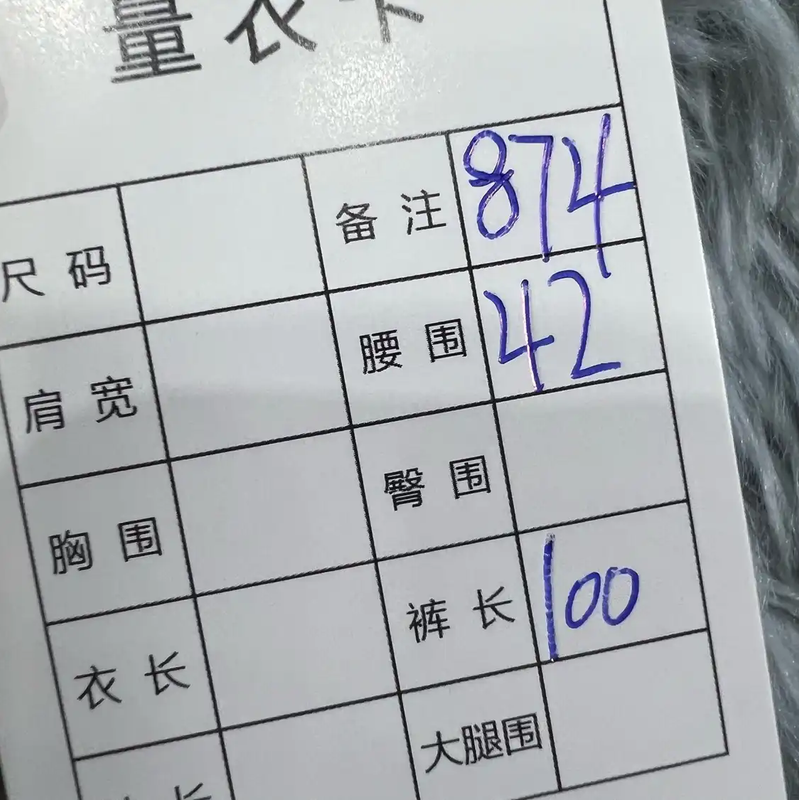 量衣卡
尺码 备注 874
肩宽 腰围 42
胸围 臀围
衣长 裤长 100
大腿围